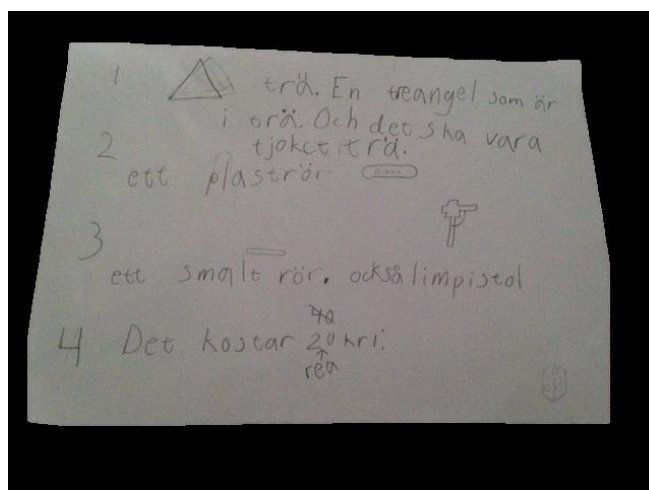 1 trä. En treangel som är
i trä. Och det ska vara
tjokct trä.
2 ett plaströr
3 ett smalt rör. också limpistol
40
4 Det kostar 20 kr.
rea